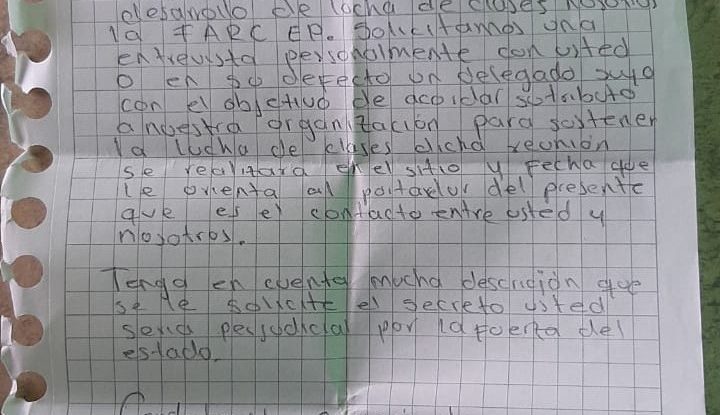 desarrollo de locha de clases nosotros
la FARC EP. Solicitamos una
entrevista personalmente con usted
o en su defecto un delegado suyo
con el objetivo de acordar su tributo
a nuestra organización para sostener
la lucha de clases dicha reunión
se realitara en el sitio y Fecha que
le orienta al portador del presente
que es el contacto entre usted y
nosotros.
Tenga en cuenta mucha descrición que
se le solicite el secreto usted
seria perjudicial por la fuerza del
estado.